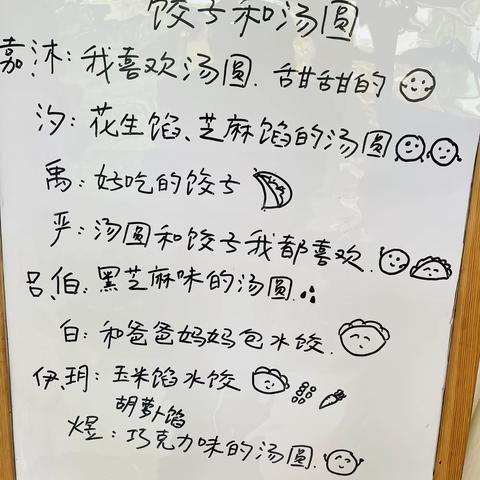 饺子和汤圆
嘉沐：我喜欢汤圆. 甜甜的
汐：花生馅、芝麻馅的汤圆
禹：好吃的饺子
严：汤圆和饺子我都喜欢.
吕伯：黑芝麻味的汤圆.
白：和爸爸妈妈包水饺.
伊玥：玉米馅水饺
胡萝卜馅
煜：巧克力味的汤圆.